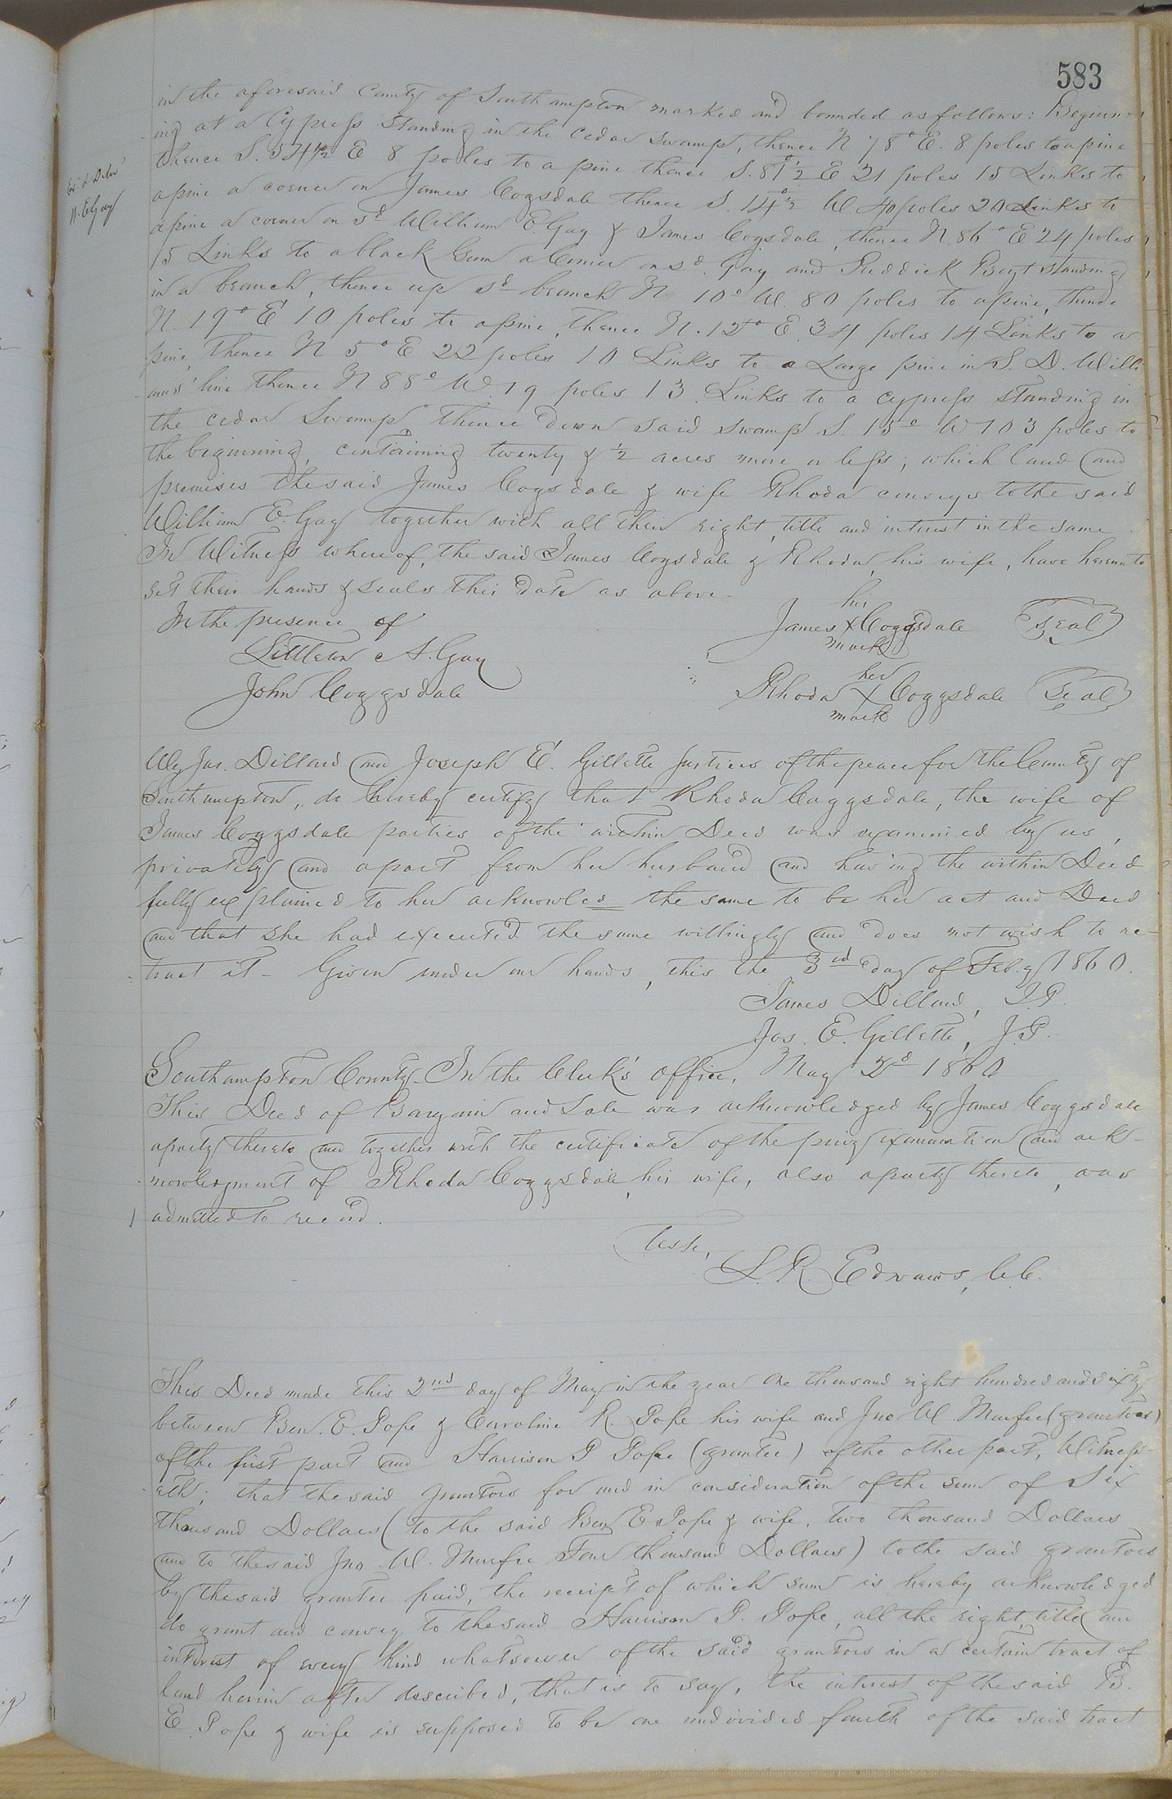 583
in the aforesaid County of Southampton marked and bounded as follows: Beginn-
ing at a Cypress standing in the cedar swamp, thence N 78° E. 8 poles to a pine
thence S. 54½ E 8 poles to a pine thence S. 81½ E 21 poles 15 Links to
Ex.d & Del.d
W. E. Gay
a pine a corner on James Cogsdale thence S. 14½ W 40 poles 20 Links to
a pine a corner on sd William E Gay & James Cogsdale, thence N. 86° E 24 poles
15 Links to a black Gum a Corner on sd. Gay and Reddick Pruyt standing
in a branch, thence up sd branch N 10° W. 80 poles to a pine, thence
N. 19° E 10 poles to a pine, thence N. 12° E 34 poles 14 Links to a
pine, thence N 5° E 22 poles 10 Links to a Large pine in S. D. Willi-
ams' line thence N 88° W. 19 poles 13 Links to a cypress standing in
the cedar Swamp thence down said swamp S. 15° W 103 poles to
the beginning, containing twenty & ½ acres more or less; which land and
premises the said James Cogsdale & wife Rhoda conveys to the said
William E. Gay together with all their right, title and interest in the same.
In Witness whereof, the said James Cogsdale & Rhoda, his wife, have hereunto
set their hands & seals this date as above.
In the presence of
Littleton A. Gay
John Coggsdale
his
James X Coggsdale Seal
mark
her
Rhoda X Coggsdale Seal
mark
We Jas. Dillard and Joseph E. Gillette Justices of the peace for the County of
Southampton, do hereby certify that Rhoda Coggsdale, the wife of
James Coggsdale parties of the within Deed was examined by us,
privately and apart from her husband and having the within Deed
fully explained to her acknowled the same to be her act and Deed
and that she had executed the same willingly and does not wish to re-
tract it - Given under our hands, this the 3rd day of Feb.y 1860.
James Dillard, J.P.
Jos. E. Gillette, J.P.
Southampton County. In the Clerk's office, May 2d 1860
This Deed of Bargain and Sale was acknowledged by James Coggsdale
a party thereto and together with the certificate of the privy examination and ack-
nowledgment of Rhoda Coggsdale, his wife, also a party thereto, was
admitted to record.
Teste,
L. R. Edwards, C.C.
This Deed made this 2nd day of May in the year one thousand eight hundred and sixty
between Ben. E. Pope & Caroline R. Pope his wife and Jno W Murfee (grantors)
of the first part and Harrison P Pope (grantee) of the other part, Witness-
eth; that the said grantors for and in consideration of the sum of Six
thousand Dollars (to the said Ben E Pope & wife, two thousand Dollars
and to the said Jno. W. Murfee Four thousand Dollars) to the said grantors
by the said grantee paid, the receipt of which sum is hereby acknowledged
do grant and convey to the said Harrison P. Pope, all the right, title and
interest of every kind whatsoever of the said grantors in a certain tract of
land herein after described, that is to say, the interest of the said B.
E Pope & wife is supposed to be one undivided fourth of the said tract